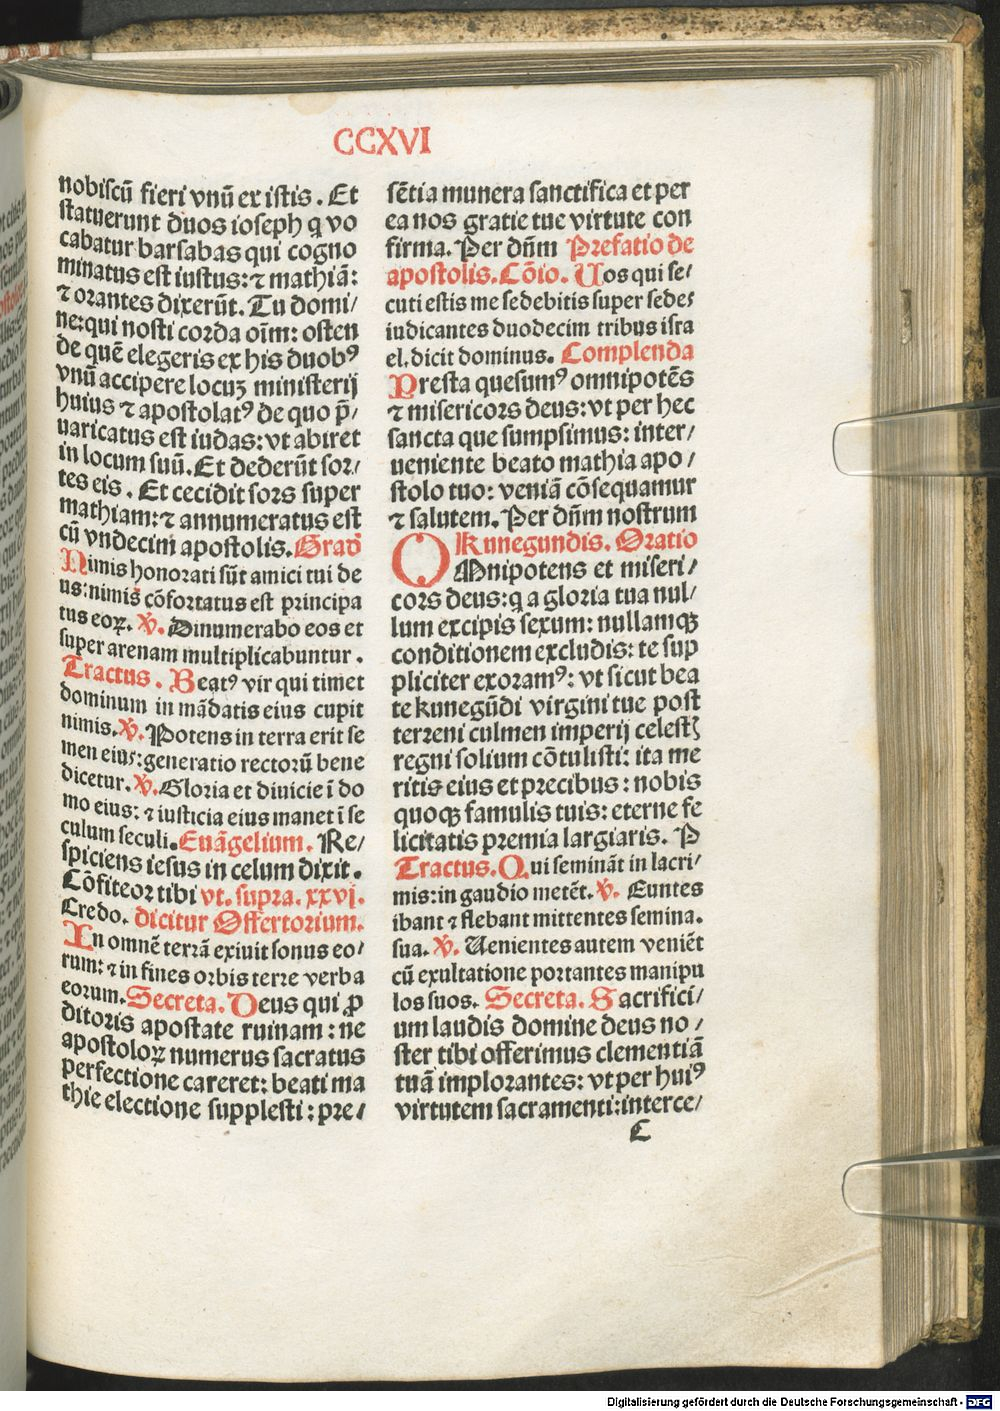 CCXVI
nobiscū fieri vnū ex istis. Et
statuerunt duos ioseph q vo
cabatur barsabas qui cogno
minatus est iustus: ⁊ mathiā:
⁊ orantes dixerūt. Tu domi/
ne: qui nosti corda oīm: osten
de quē elegeris ex his duobꝰ
vnū accipere locuꝫ ministerij
huius ⁊ apostolatꝰ de quo p̄/
uaricatus est iudas: vt abiret
in locum suū. Et dederūt sor/
tes eis. Et cecidit sors super
mathiam: ⁊ annumeratus est
cū vndecim apostolis. Grad̄
Nimis honorati sūt amici tui de
us: nimis cōfortatus est principa
tus eoꝝ. ℣. Dinumerabo eos et
super arenam multiplicabuntur.
Tractus. Beatꝰ vir qui timet
dominum in mādatis eius cupit
nimis. ℣. Potens in terra erit se
men eius: generatio rectorū bene
dicetur. ℣. Gloria et diuicie ī do
mo eius: ⁊ iusticia eius manet ī se
culum seculi. Euāgelium. Re/
spiciens iesus in celum dixit.
Cōfiteor tibi vt. supra. xxvj.
Credo. dicitur Offertorium.
In omnē terrā exiuit sonus eo/
rum: ⁊ in fines orbis terre verba
eorum. Secreta. Deus qui ꝓ
ditoris apostate ruinam: ne
apostoloꝝ numerus sacratus
perfectione careret: beati ma
thie electione supplesti: pre/
sētia munera sanctifica et per
ea nos gratie tue virtute con
firma. Per dn̄m Prefatio de
apostolis. Cōio. Uos qui se/
cuti estis me sedebitis super sedes
iudicantes duodecim tribus isra
el. dicit dominus. Complenda
Presta quesumꝰ omnipotēs
⁊ misericors deus: vt per hec
sancta que sumpsimus: inter/
ueniente beato mathia apo/
stolo tuo: veniā cōsequamur
⁊ salutem. Per dn̄m nostrum
Kunegundis. Oratio
OMnipotens et miseri/
cors deus: q a gloria tua nul/
lum excipis sexum: nullamqꝫ
conditionem excludis: te sup
pliciter exoramꝰ: vt sicut bea
te kunegūdi virgini tue post
terreni culmen imperij celestꝭ
regni solium cōtulisti: ita me
ritis eius et precibus: nobis
quoqꝫ famulis tuis: eterne fe
licitatis premia largiaris. P
Tractus. Qui semināt in lacri/
mis: in gaudio metēt. ℣. Euntes
ibant ⁊ flebant mittentes semina.
sua. ℣. Uenientes autem veniēt
cū exultatione portantes manipu
los suos. Secreta. Sacrifici/
um laudis domine deus no/
ster tibi offerimus clementiā
tuā implorantes: vt per huiꝰ
virtutem sacramenti: interce/
C
Digitalisierung gefördert durch die Deutsche Forschungsgemeinschaft - DFG